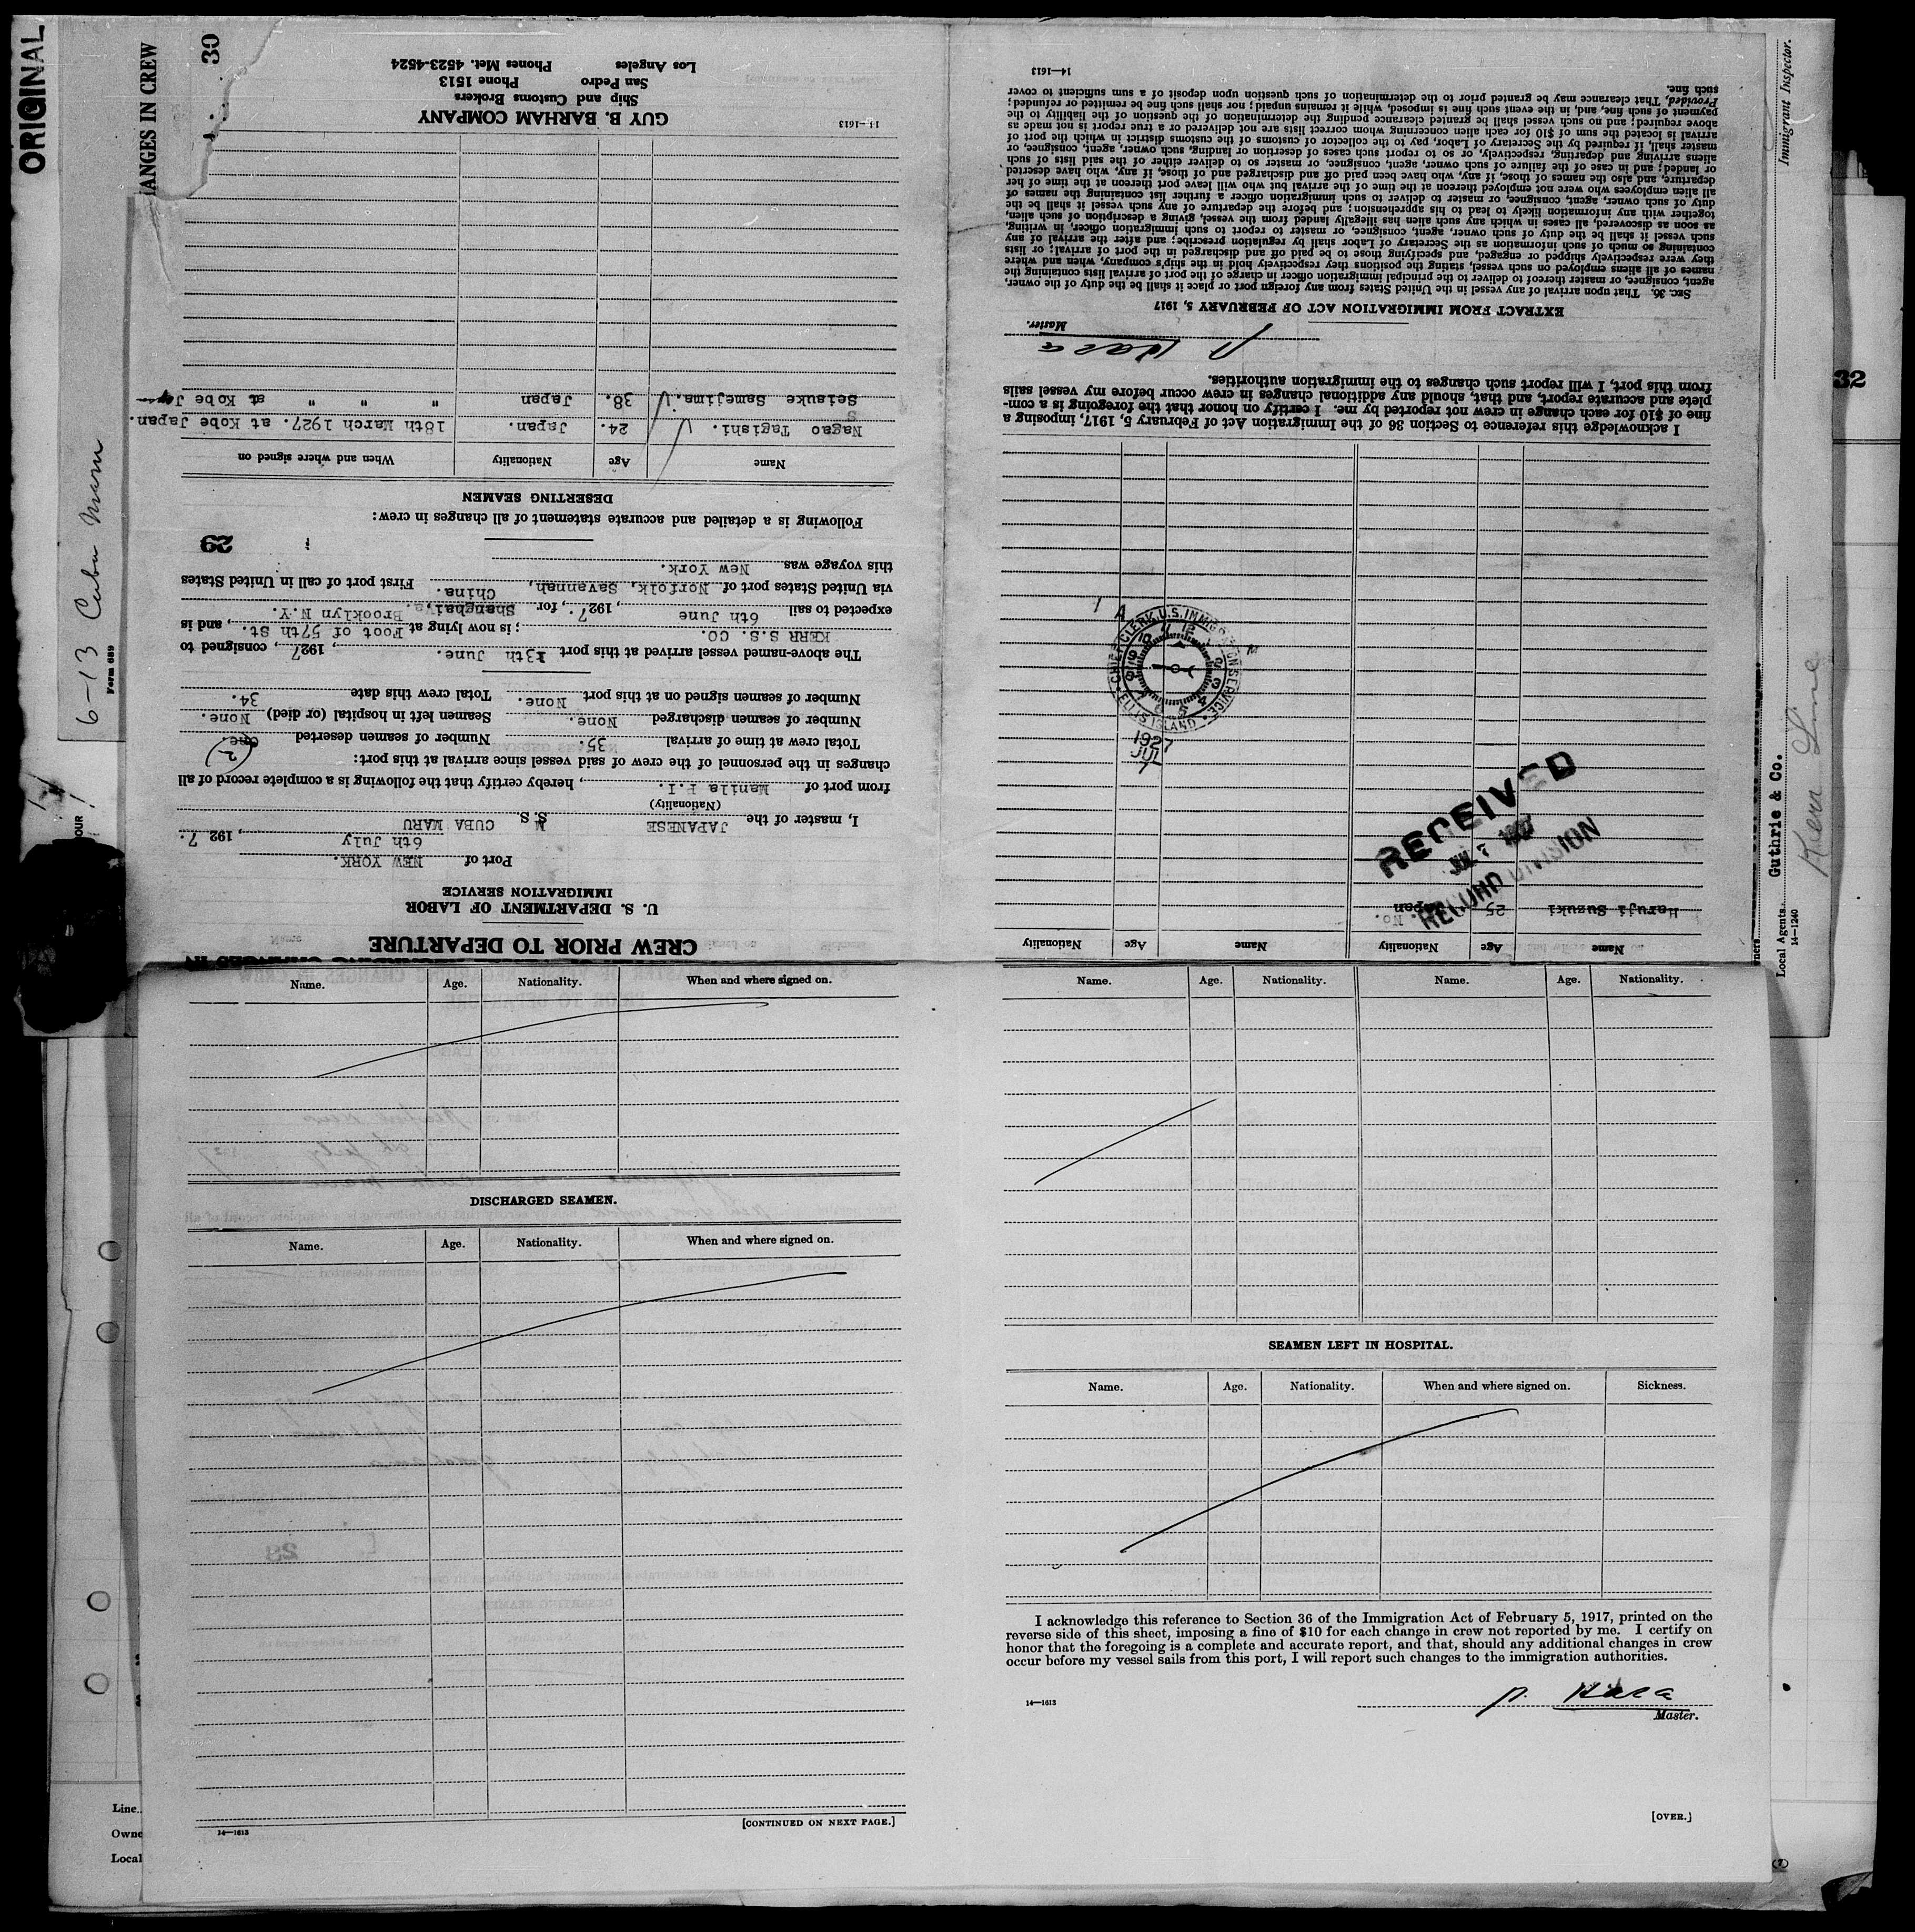 ORIGINAL
ANGES IN CREW
30
6-13 Cuba Maru
Form 689
OUR
CREW PRIOR TO DEPARTURE
U. S. DEPARTMENT OF LABOR
IMMIGRATION SERVICE
Port of NEW YORK.
6th July, 1927.
I, master of the JAPANESE M S.S. CUBA MARU
(Nationality)
from port of Manila P.I., hereby certify that the following is a complete record of all
changes in the personnel of the crew of said vessel since arrival at this port:
Total crew at time of arrival 35. Number of seamen deserted One. (2)
Number of seamen discharged None. Seamen left in hospital (or died) None.
Number of seamen signed on at this port None. Total crew this date 34.
The above-named vessel arrived at this port 13th June., 1927, consigned to
KERR S.S. CO.; is now lying at Foot of 57th St. Brooklyn N.Y., and is
expected to sail 6th June, 1927., for Shanghai, China.
via United States port of Norfolk, Savannah, First port of call in United States
this voyage was New York.
29
Following is a detailed and accurate statement of all changes in crew:
DESERTING SEAMEN
Name Age Nationality When and where signed on
Nagao Tagishi. 24. Japan. 18th March 1927. at Kobe Japan.
S
Seisuke Samejima. 38. Japan " " " at Kobe
14—1613
GUY B. BARHAM COMPANY
Ship and Customs Brokers
San Pedro Phone 1513
Los Angeles Phones Met. 4523-4524
Name Age Nationality Name Age Nationality
Haruji Suzuki 25 Japan No.
RECEIVED
JUL 7 1927
RECORD DIVISION
CHIEF CLERK, U.S. IMMIGRATION SERVICE
ELLIS ISLAND
1927
JUL
7
I acknowledge this reference to Section 36 of the Immigration Act of February 5, 1917, imposing a
fine of $10 for each change in crew not reported by me. I certify on honor that the foregoing is a com-
plete and accurate report, and that, should any additional changes in crew occur before my vessel sails
from this port, I will report such changes to the immigration authorities.
Master.
EXTRACT FROM IMMIGRATION ACT OF FEBRUARY 5, 1917
Sec. 36. That upon arrival of any vessel in the United States from any foreign port or place it shall be the duty of the owner,
agent, consignee, or master thereof to deliver to the principal immigration officer in charge of the port of arrival lists containing the
names of all aliens employed on such vessel, stating the positions they respectively hold in the ship's company, when and where
they were respectively shipped or engaged, and specifying those to be paid off and discharged in the port of arrival; or lists
containing so much of such information as the Secretary of Labor shall by regulation prescribe; and after the arrival of any
such vessel it shall be the duty of such owner, agent, consignee, or master to report to such immigration officer, in writing,
as soon as discovered, all cases in which any such alien has illegally landed from the vessel, giving a description of such alien,
together with any information likely to lead to his apprehension; and before the departure of any such vessel it shall be the
duty of such owner, agent, consignee, or master to deliver to such immigration officer a further list containing the names of
all alien employees who were not employed thereon at the time of the arrival but who will leave port thereon at the time of her
departure, and also the names of those, if any, who have been paid off and discharged and of those, if any, who have deserted
or landed; and in case of the failure of such owner, agent, consignee, or master so to deliver either of the said lists of such
aliens arriving and departing, respectively, or so to report such cases of desertion or landing, such owner, agent, consignee, or
master shall, if required by the Secretary of Labor, pay to the collector of customs of the customs district in which the port of
arrival is located the sum of $10 for each alien concerning whom correct lists are not delivered or a true report is not made as
above required; and no such vessel shall be granted clearance pending the determination of the question of the liability to the
payment of such fine, and, in the event such fine is imposed, while it remains unpaid; nor shall such fine be remitted or refunded;
Provided, That clearance may be granted prior to the determination of such question upon deposit of a sum sufficient to cover
such fine.
14—1613
Immigrant Inspector.
32
Local Agents. Guthrie & Co.
14—1240
Kerr Line
Name. Age. Nationality. When and where signed on.
DISCHARGED SEAMEN.
Name. Age. Nationality. When and where signed on.
14—1613
[CONTINUED ON NEXT PAGE.]
Line
Owne
Local
Name. Age. Nationality. Name. Age. Nationality.
SEAMEN LEFT IN HOSPITAL.
Name. Age. Nationality. When and where signed on. Sickness.
I acknowledge this reference to Section 36 of the Immigration Act of February 5, 1917, printed on the
reverse side of this sheet, imposing a fine of $10 for each change in crew not reported by me. I certify on
honor that the foregoing is a complete and accurate report, and that, should any additional changes in crew
occur before my vessel sails from this port, I will report such changes to the immigration authorities.
14—1613
Master.
[OVER.]